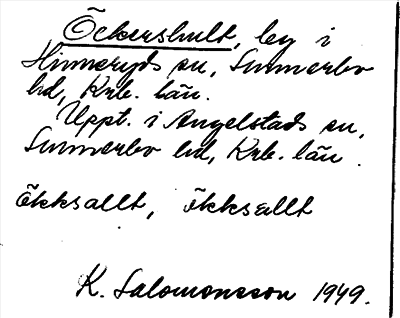 Öckershult, by i
Hinneryds sn, Sunnerbo
hd, Krb. län.
Uppt. i Angelstads sn,
Sunnerbo hd, Krb. län.
ökksallt, ìkksallt
K. Salomonsson 1949.